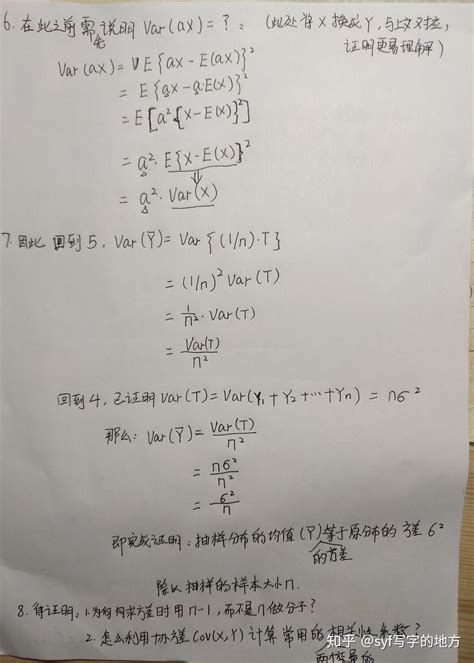 6. 在此之前需先说明 Var(aX) = ? : (此处将X换成Y,与上文对应,
证明更易理解)
Var(aX) = E{aX - E(aX)}²
= E{aX - a·E(X)}²
= E[a²{X - E(X)}²]
= a²·E{X - E(X)}²
= a²·Var(X)
7. 因此 回到5, Var(Ȳ) = Var{(1/n)·T}
= (1/n)² Var(T)
= 1/n² · Var(T)
= Var(T)/n²
回到4, 已证明 Var(T) = Var(Y₁ + Y₂ + ··· + Yn) = nσ²
那么: Var(Ȳ) = Var(T)/n²
= nσ²/n²
= σ²/n
即完成证明: 抽样分布的均值(Ȳ)的方差等于原分布的方差σ²
除以抽样的样本大小n.
8. 待证明: 1. 为何求方差时用n-1, 而不是n做分子?
2. 怎么利用协方差Cov(X,Y)计算常用的相关性系数?
两变量的
知乎 @syf写字的地方